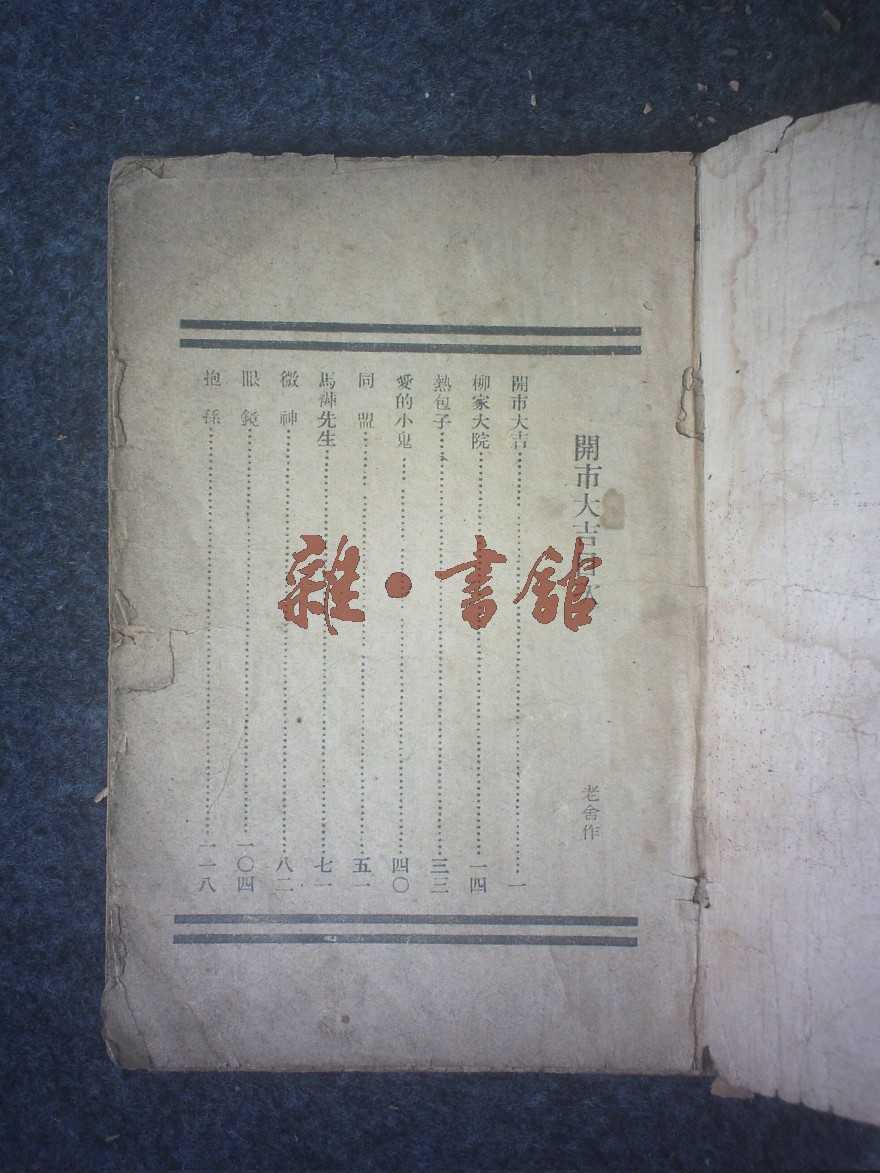 開市大吉目次
老舍作
開市大吉……一
柳家大院……一四
熱包子……三三
愛的小鬼……四〇
同盟……五一
馬褲先生……七一
微神……八二
眼鏡……一〇四
抱孫……一一八
雜·書館